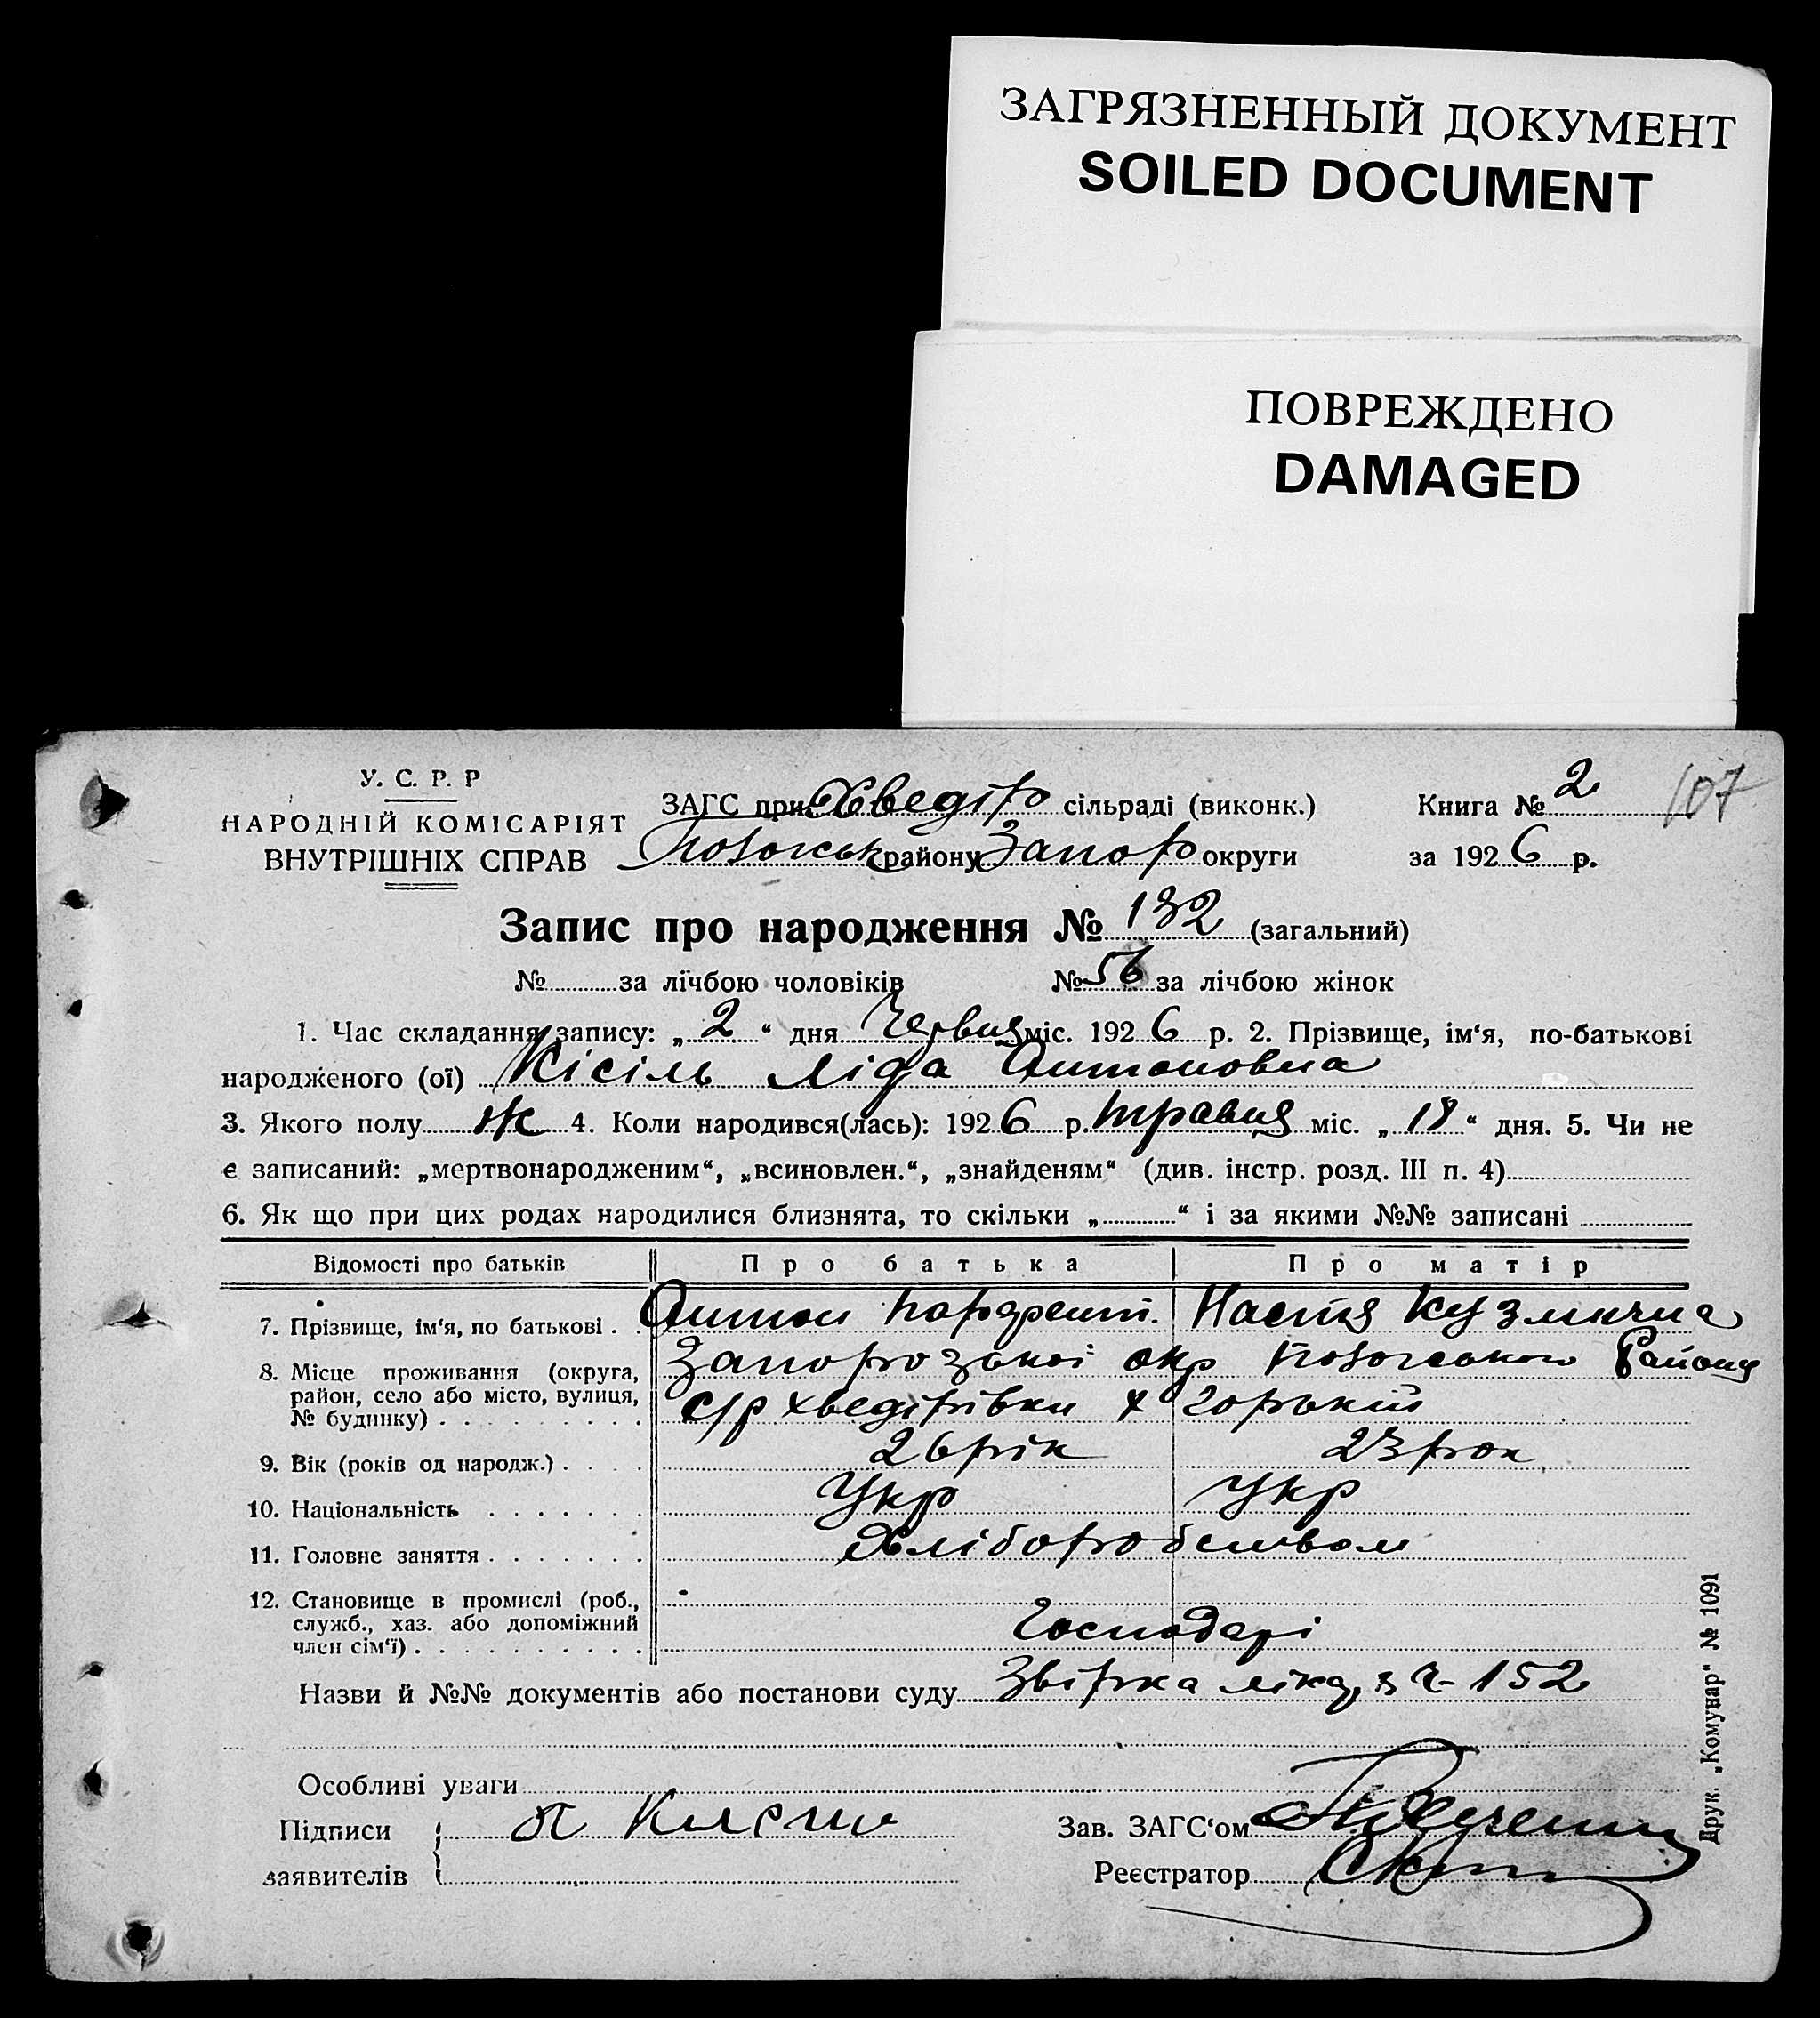 ЗАГРЯЗНЕННЫЙ ДОКУМЕНТ
SOILED DOCUMENT
ПОВРЕЖДЕНО
DAMAGED
У. С. Р. Р
НАРОДНІЙ КОМІСАРІЯТ
ВНУТРІШНІХ СПРАВ
ЗАГС при Хведір сільраді (виконк.)
району Запор округи
Книга № 2
107
за 1926 р.
Запис про народження № 132 (загальний)
№ за лічбою чоловіків № 56 за лічбою жінок
1. Час складання запису: „ 2 “ дня Червня міс. 1926 р. 2. Прізвище, ім‘я, по-батькові
народженого (ої) Кісіль Ліда Антоновна
3. Якого полу ж 4. Коли народився(лась): 1926 р. травня міс. „ 18 “ дня. 5. Чи не
є записаний: „мертвонародженим“, „всиновлен.“, „знайденям“ (див. інстр. розд. III п. 4)
6. Як що при цих родах народилися близнята, то скільки „ “ і за якими №№ записані
Відомості про батьків Про батька Про матір
7. Прізвище, ім‘я, по батькові . . Антон Настя Кузмична
8. Місце проживання (округа, Запорозької окр Району
район, село або місто, вулиця,
№ будинку) . . . . . . . . . с/р Хведірівки х Горький
9. Вік (років од народж.) . . . . 26 рік 23 рок
10. Національність . . . . . . . Укр Укр
11. Головне заняття . . . . . . . Хліборобством
12. Становище в промислі (роб.,
служб., хаз. або допоміжний
член сім‘ї) . . . . . . . . . . Господарі
Назви й №№ документів або постанови суду Звірка 152
Особливі уваги
Підписи
заявителів
Зав. ЗАГС‘ом
Реєстратор
Друк. „Комунар“ № 1091